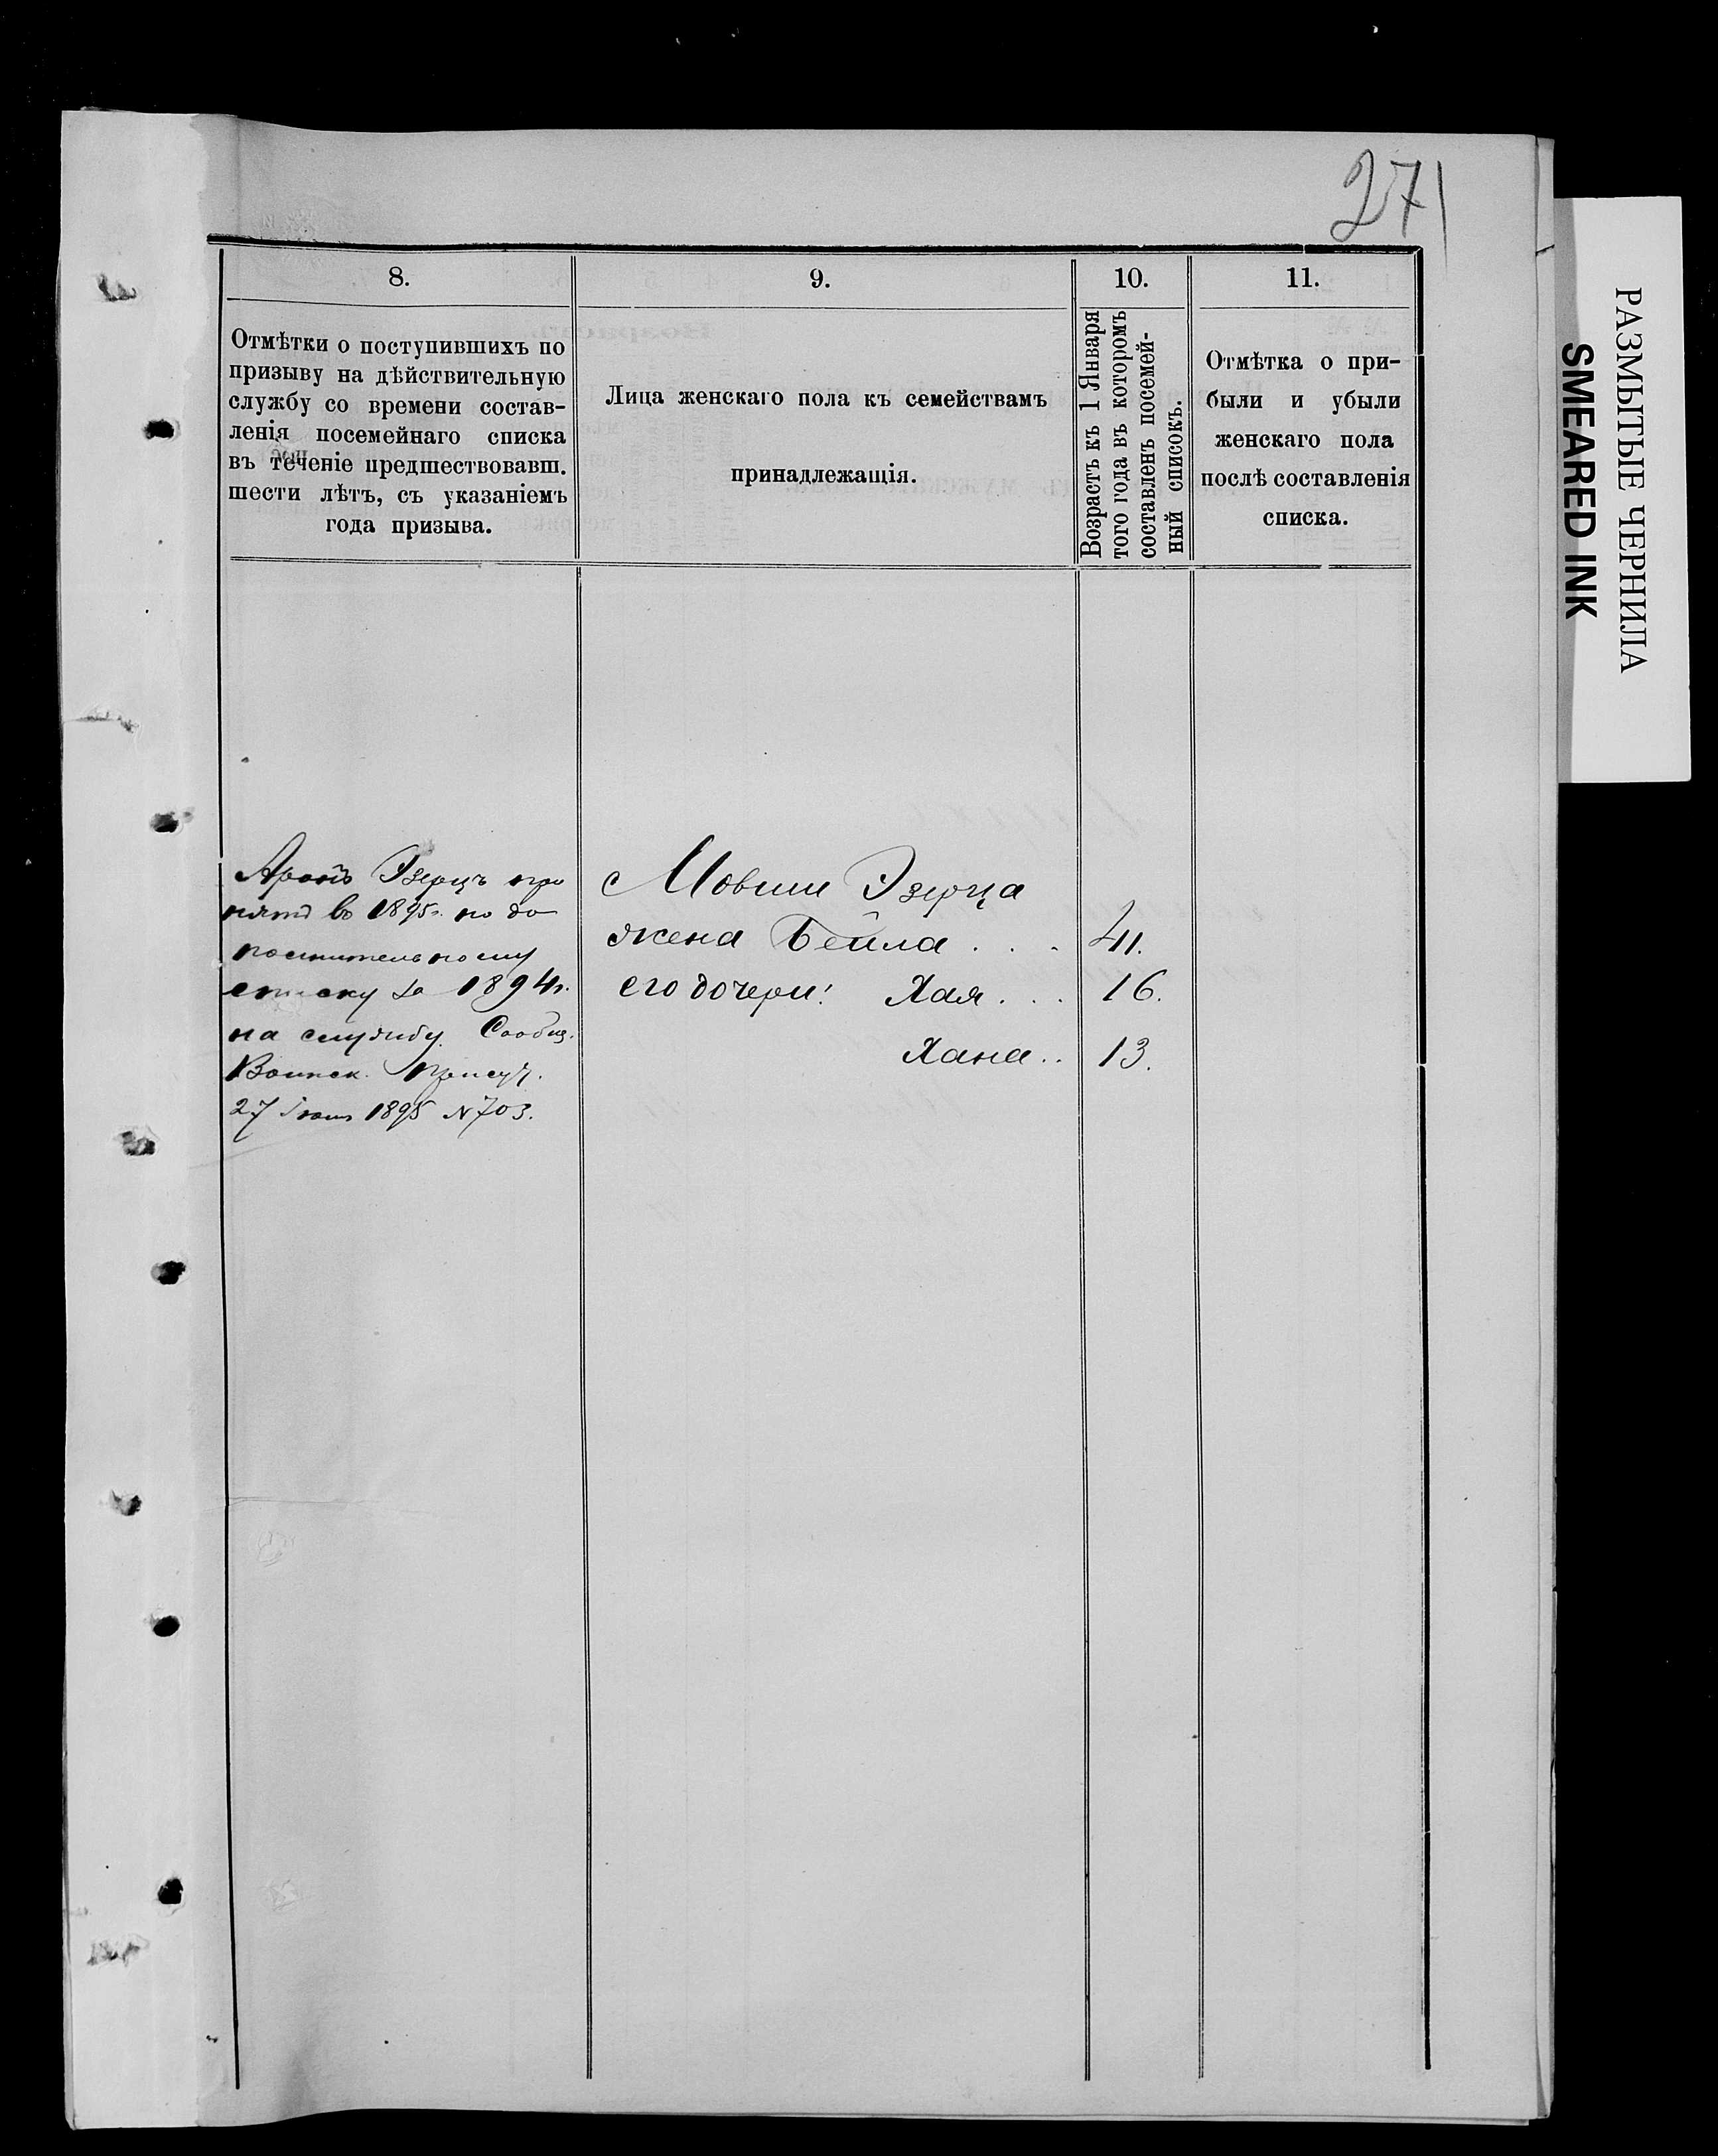 271
8.
Отмѣтки о поступившихъ по
призыву на дѣйствительную
службу со времени состав-
ленія посемейнаго списка
въ теченіе предшествовавш.
шести лѣтъ, съ указаніемъ
года призыва.
9.
Лица женскаго пола къ семействамъ
принадлежащія.
10.
Возрастъ къ 1 Января
того года въ которомъ
составленъ посемей-
ный списокъ.
11.
Отмѣтка о при-
были и убыли
женскаго пола
послѣ составленія
списка.
Аронъ Эзерцъ при
нятъ въ 1895 г. по до
полнительному
списку за 1894 г.
на службу. Сообщ.
Воинск. Присут.
27 Іюня 1895 N 703.
Мовши Эзерца
жена Бейла . . . 41.
его дочери: Хая . . . 16.
Хана . . 13.
РАЗМЫТЫЕ ЧЕРНИЛА
SMEARED INK